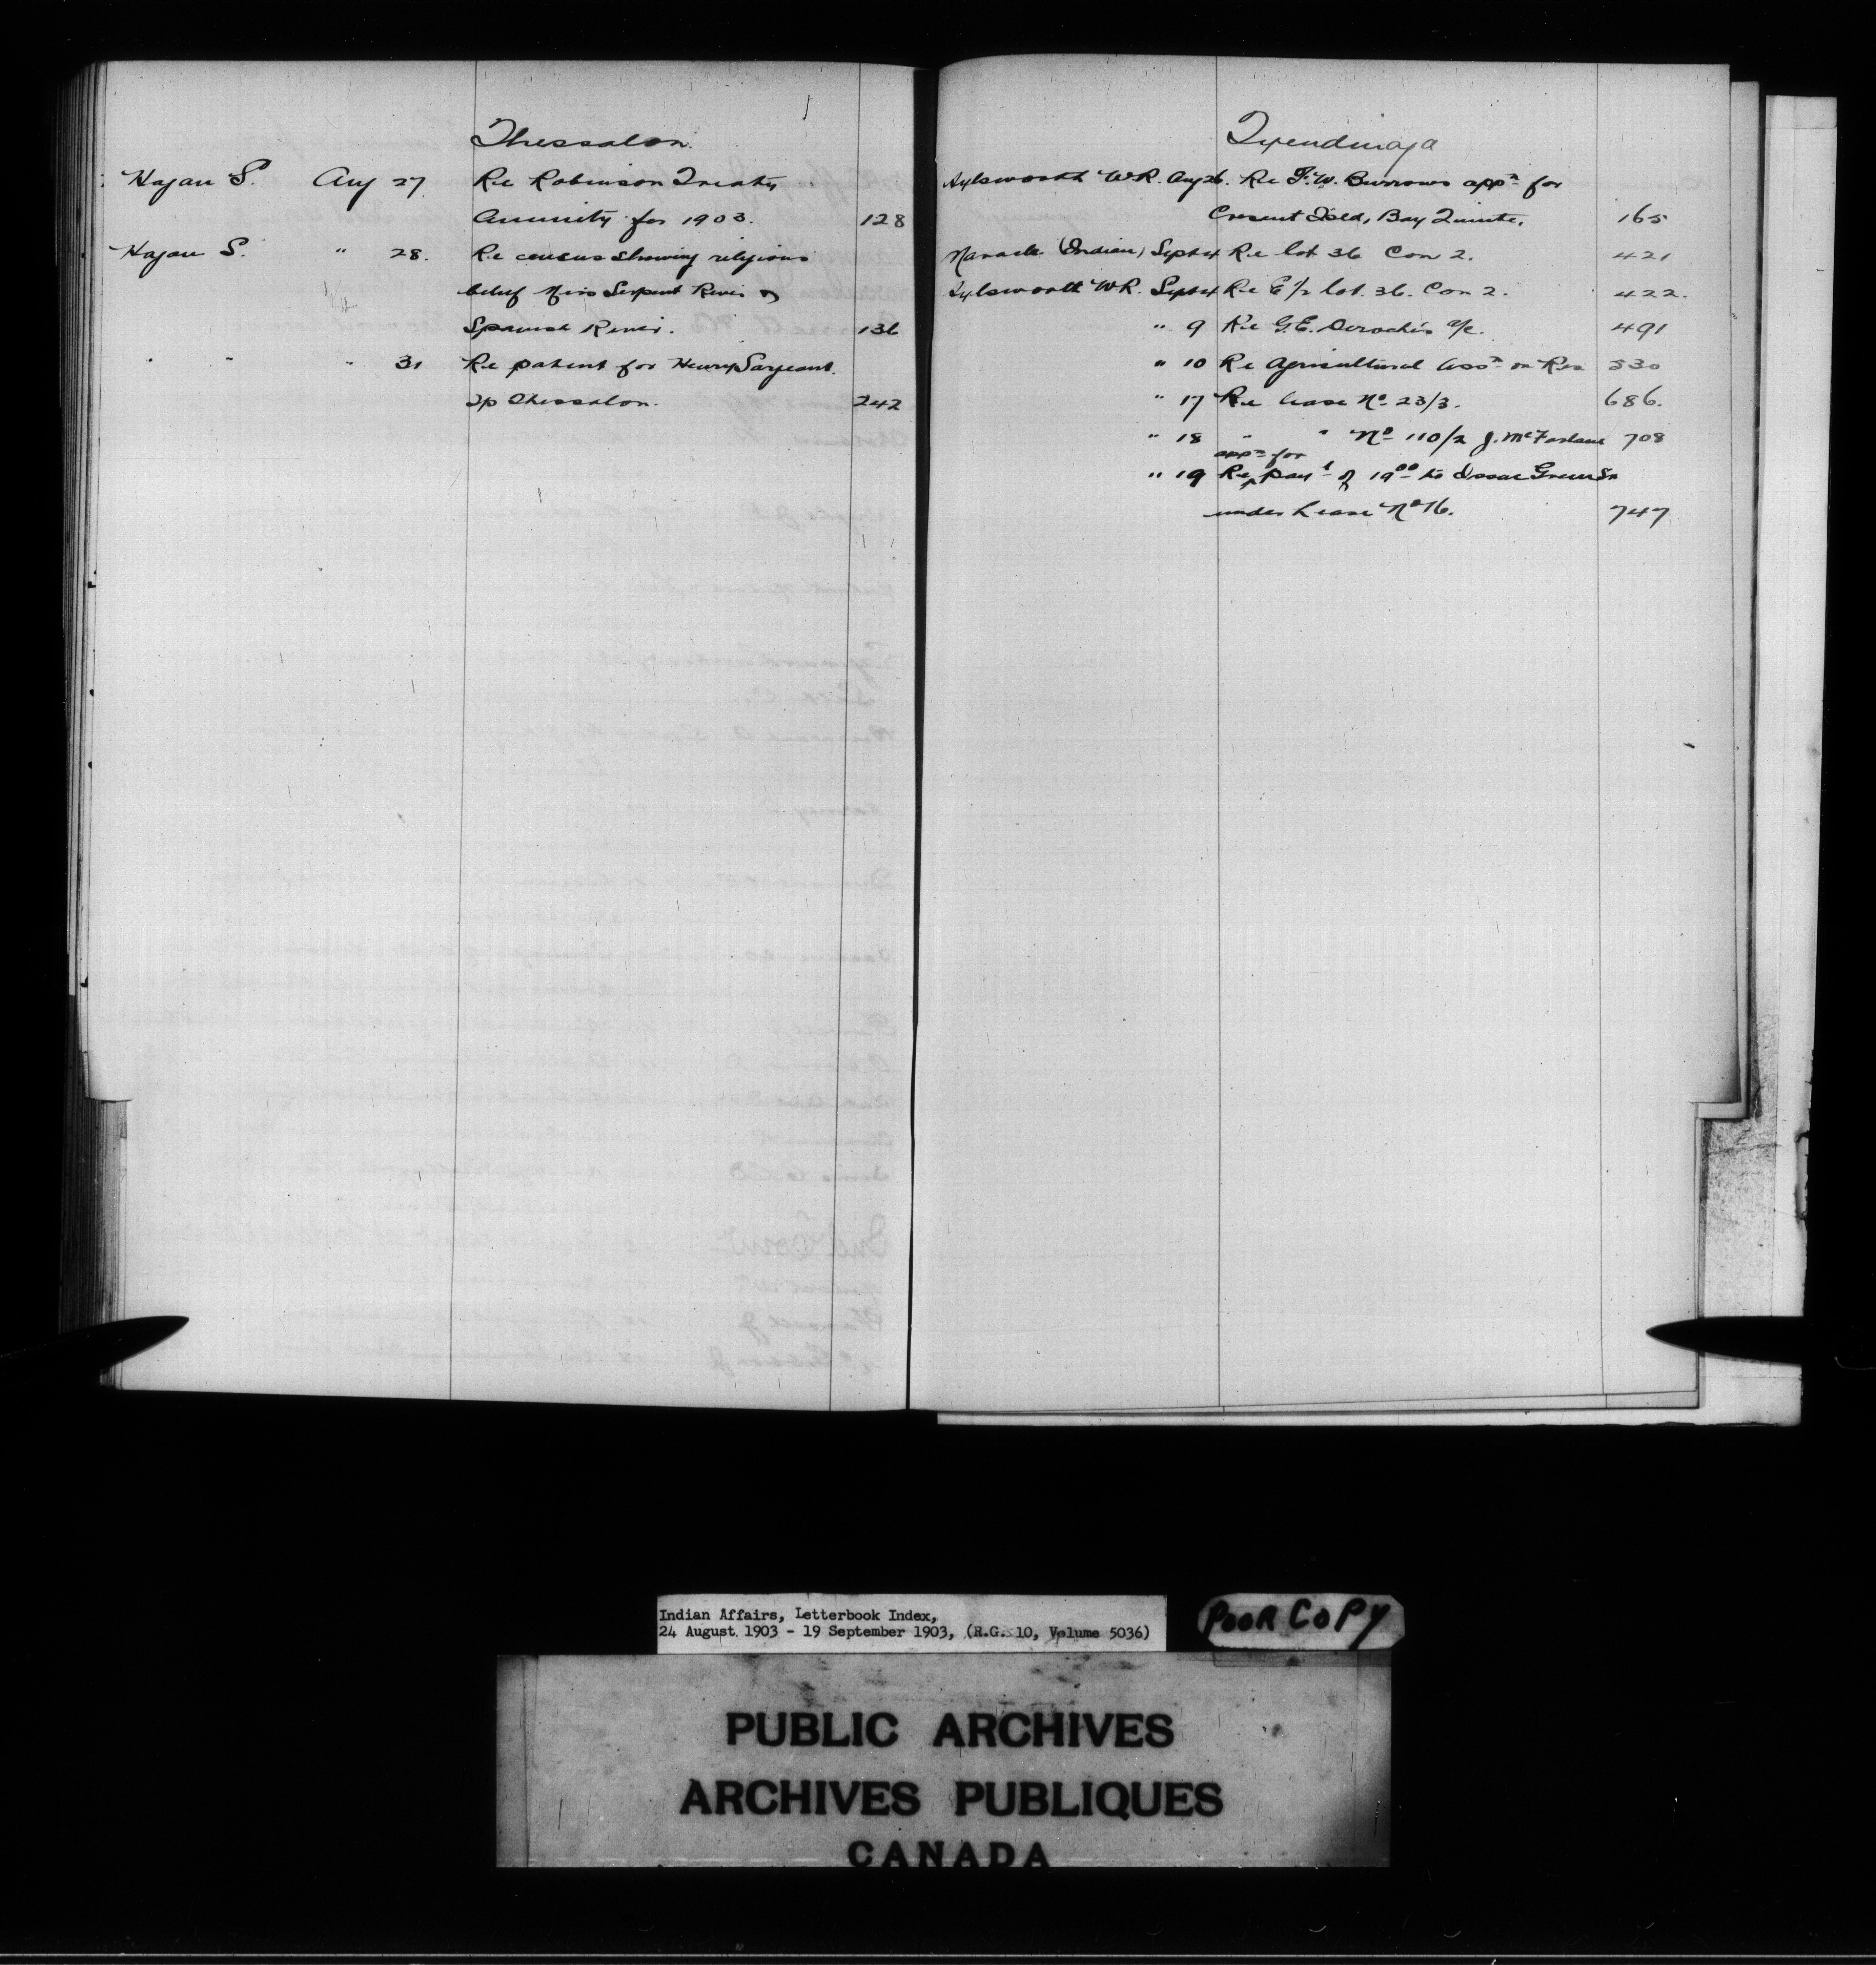 Thessalon.
Hagan S. Aug 27 Re Robinson Treaty
Annuity for 1903. 128
Hagan S. " 28. Re census showing religious
belief Miss Serpent River &
Spanish River. 136
" " " 31 Re patent for Henry Sargeant.
Tp Thessalon. 242
Tyendinaga
Aylsworth WR. Aug 26. Re F.W. Burrows appn for
Cresent Isld, Bay Quinte. 165
(Indian) Sept 4 Re lot 36 Con 2. 421
Aylsworth WR. Sept 4 Re E 1/2 lot. 36. Con 2. 422.
" 9 Re G.E. Deroche's a/c. 491
" 10 Re Agricultural Assn on Res 530
" 17 Re lease No 23/3. 686.
" 18 " " No 110/2 J. McFarlane 708
appn for
" 19 Re payt of 19.00 to Isaac Green Sr
under Lease No 16. 747
Indian Affairs, Letterbook Index,
24 August 1903 - 19 September 1903, (R.G. 10, Volume 5036)
POOR COPY
PUBLIC ARCHIVES
ARCHIVES PUBLIQUES
CANADA